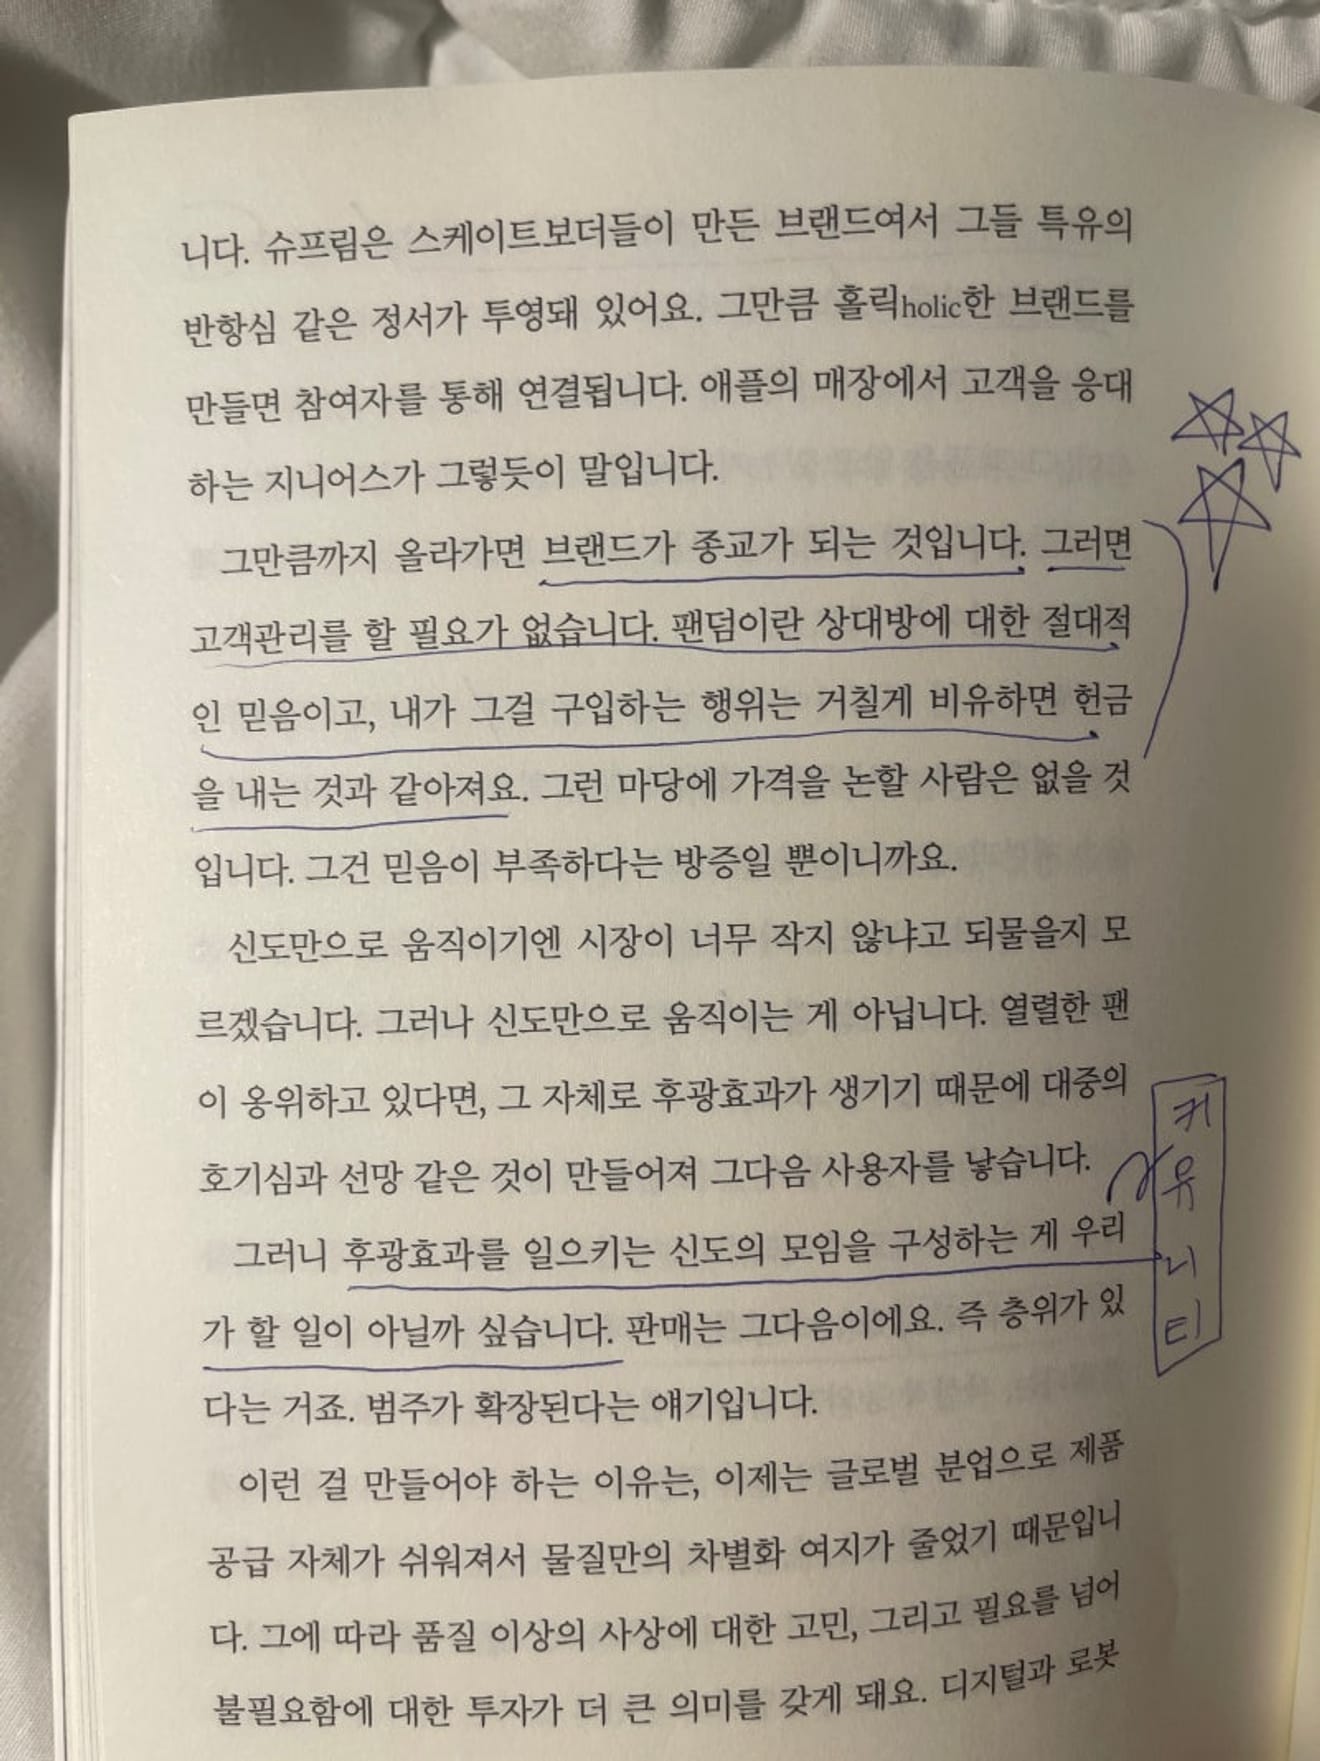 니다. 슈프림은 스케이트보더들이 만든 브랜드여서 그들 특유의
반항심 같은 정서가 투영돼 있어요. 그만큼 홀릭holic한 브랜드를
만들면 참여자를 통해 연결됩니다. 애플의 매장에서 고객을 응대
하는 지니어스가 그렇듯이 말입니다.
그만큼까지 올라가면 브랜드가 종교가 되는 것입니다. 그러면
고객관리를 할 필요가 없습니다. 팬덤이란 상대방에 대한 절대적
인 믿음이고, 내가 그걸 구입하는 행위는 거칠게 비유하면 헌금
을 내는 것과 같아져요. 그런 마당에 가격을 논할 사람은 없을 것
입니다. 그건 믿음이 부족하다는 방증일 뿐이니까요.
신도만으로 움직이기엔 시장이 너무 작지 않냐고 되물을지 모
르겠습니다. 그러나 신도만으로 움직이는 게 아닙니다. 열렬한 팬
이 옹위하고 있다면, 그 자체로 후광효과가 생기기 때문에 대중의
호기심과 선망 같은 것이 만들어져 그다음 사용자를 낳습니다.
그러니 후광효과를 일으키는 신도의 모임을 구성하는 게 우리
가 할 일이 아닐까 싶습니다. 판매는 그다음이에요. 즉 층위가 있
다는 거죠. 범주가 확장된다는 얘기입니다.
이런 걸 만들어야 하는 이유는, 이제는 글로벌 분업으로 제품
공급 자체가 쉬워져서 물질만의 차별화 여지가 줄었기 때문입니
다. 그에 따라 품질 이상의 사상에 대한 고민, 그리고 필요를 넘어
불필요함에 대한 투자가 더 큰 의미를 갖게 돼요. 디지털과 로봇
커
유
니
티